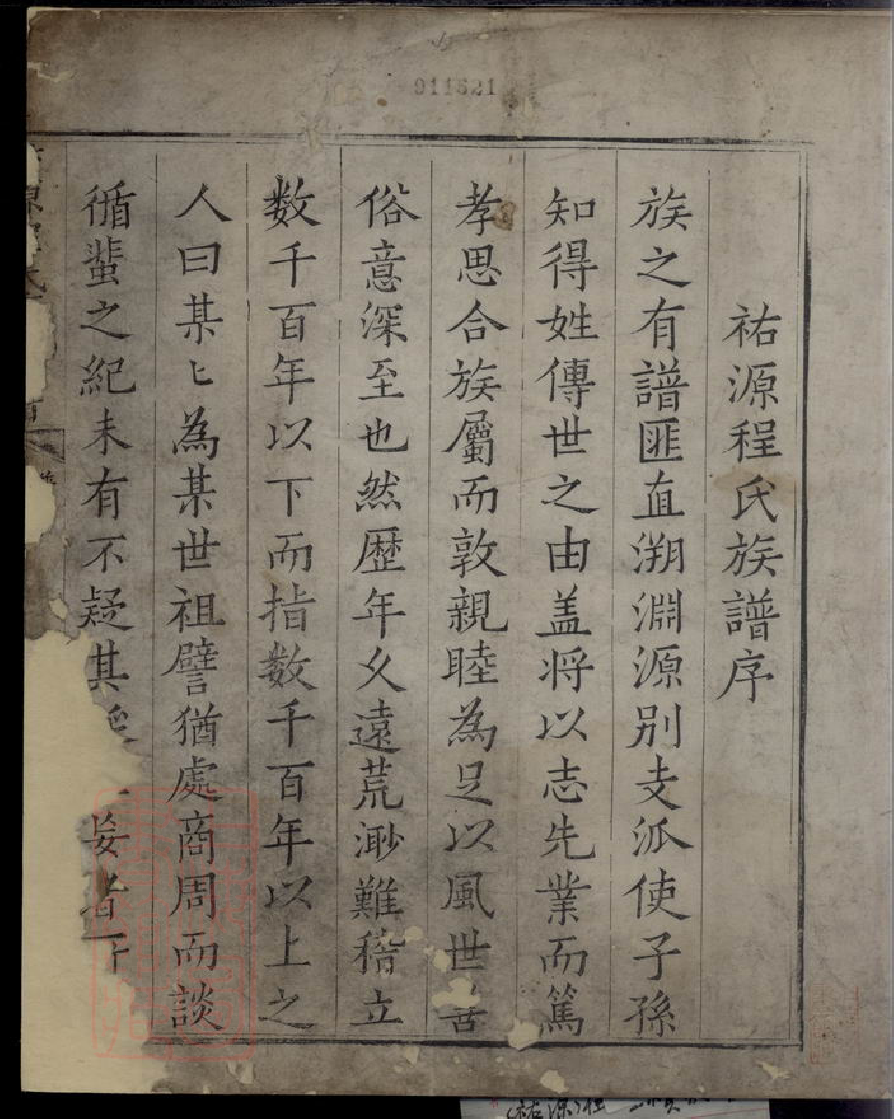 011521
祐源程氏族譜序
族之有譜匪直溯淵源别支派使子孫
知得姓傳世之由盖将以志先業而篤
孝思合族屬而敦親睦為足以風世善
俗意深至也然歷年久遠荒渺難稽立
数千百年以下而指数千百年以上之
人曰某〻為某世祖譬猶處商周而談
循蜚之紀未有不疑其 妄者